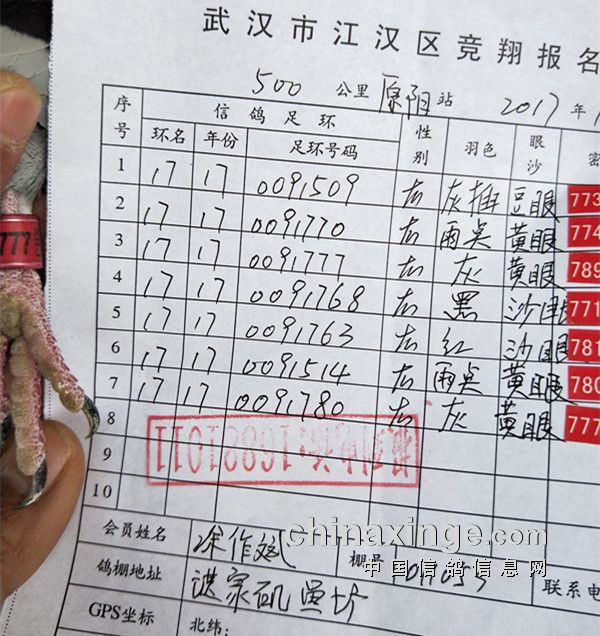 武汉市江汉区竞翔报名
500 公里 原阳 站 2017 年
序号 信鸽足环 性别 羽色 眼沙
环名 年份 足环号码
1 17 17 0091509 灰 豆眼 773
2 17 17 0091770 雨点 黄眼 774
3 17 17 0091777 灰 黄眼 789
4 17 17 0091768 黑 沙眼 771
5 17 17 0091763 红 沙眼 781
6 17 17 0091514 雨点 黄眼 780
7 17 17 0091780 灰 黄眼 777
8
9
10
777
会员姓名 棚号
chinaxinge.com
中国信鸽信息网
鸽棚地址 联系电
GPS坐标 北纬: